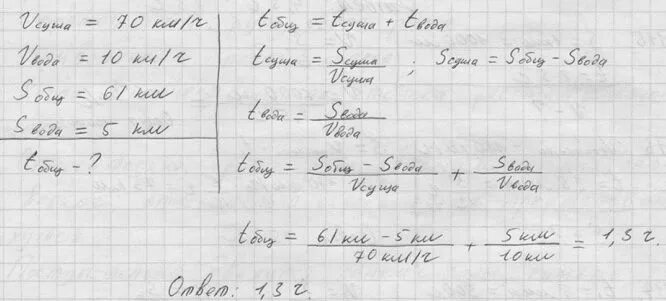 Vсуша = 70 км/ч
Vвода = 10 км/ч
Sобщ = 61 км
Sвода = 5 км
tобщ - ?
tобщ = tсуша + tвода
tсуша = Sсуша / Vсуша ; Sсуша = Sобщ - Sвода
tвода = Sвода / Vвода
tобщ = Sобщ - Sвода / Vсуша + Sвода / Vвода
tобщ = 61 км - 5 км / 70 км/ч + 5 км / 10 км = 1,3 ч.
Ответ: 1,3 ч.